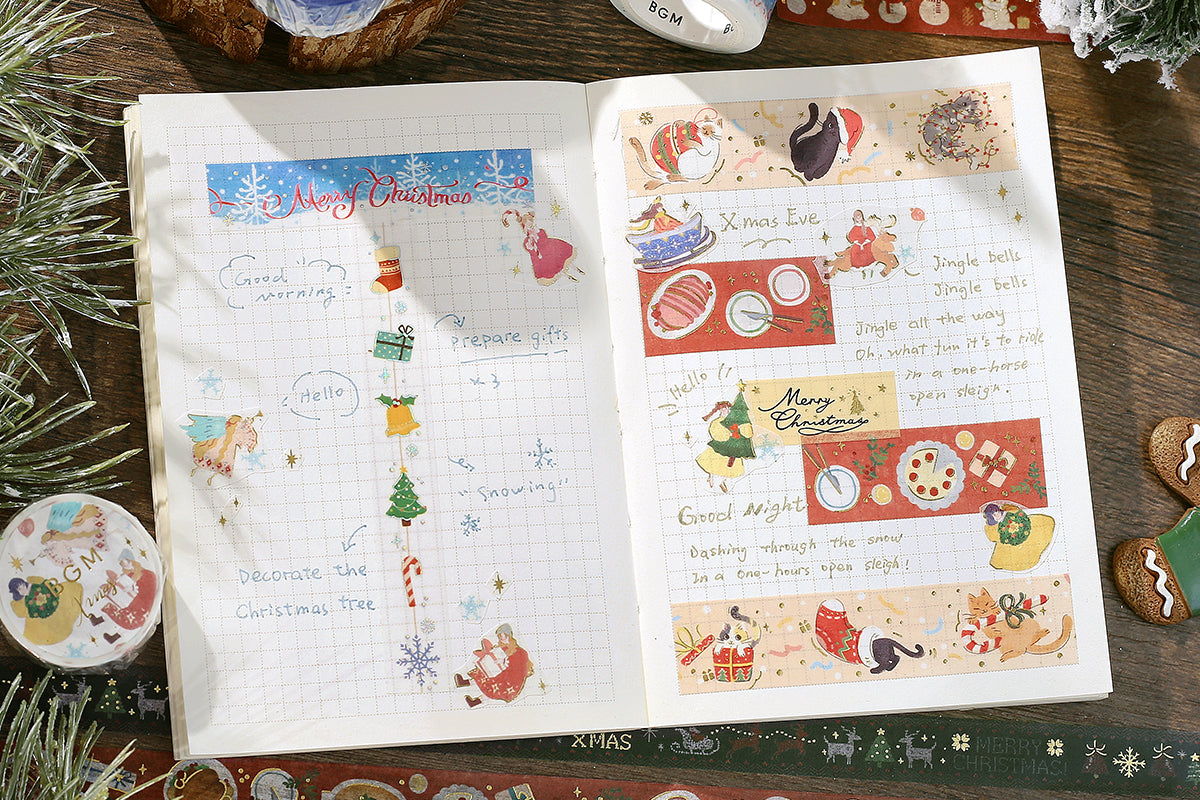 BGM
Merry Christmas
Good
morning
Hello
prepare gifts
x3
"Snowing"
Decorate the
Christmas tree
BGM
Xmas Eve
Jingle bells
Jingle bells
Jingle all the way
Oh, what fun it's to ride
in a one-horse
open sleigh.
Hello
Merry
Christmas
Good Night
Dashing through the snow
In a one-hours open sleigh!
XMAS
MERRY
CHRISTMAS!